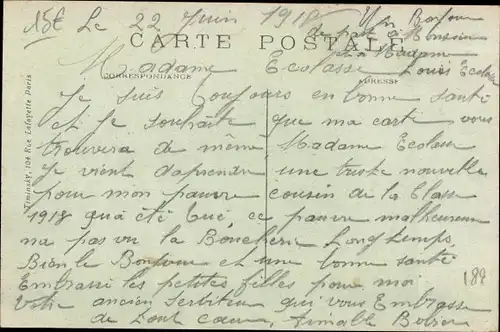 15€ Le 22 Juin 1918
Un Bonjour
de part à Monsieur
et à Madame
Louis Ecolasse
CARTE POSTALE
Madame Ecolasse
CORRESPONDANCE
ADRESSE
Je suis toujours en bonne santé
et je souhaite que ma carte vous
trouvera de même Madame Ecolasse
Je vient d'aprendre une triste nouvelle
pour mon pauvre cousin de la Classe
1918 qua été tué, ce pauvre malheureux
na pas vu la Boucherie Longtemps,
Bien le Bonjour et une bonne santé
Embrassé les petites filles pour moi
Votre ancien serviteur qui vous Embrasse
de tout cœur, Aimable
188
104 Rue Lafayette Paris